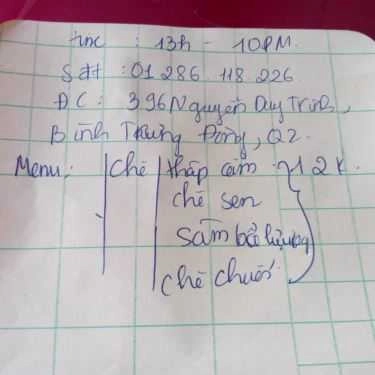 time : 13h - 10PM.
Sđt : 01 286 118 226
ĐC : 396 Nguyễn Duy Trinh,
Bình Trưng Đông, Q2.
Menu : Chè thập cẩm 12k.
chè sen
sâm bổ lượng
chè chuối